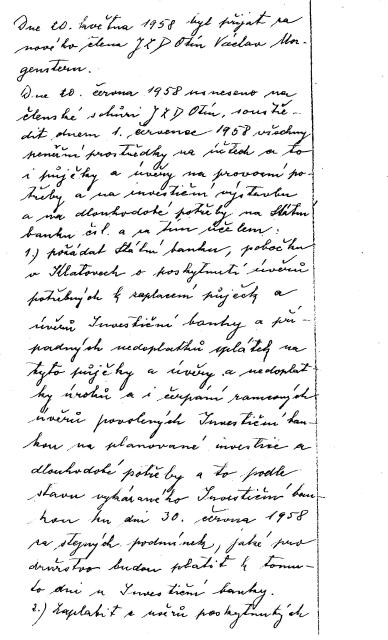 Dne 20. května 1958 byl přijat za
nového člena JZD Otín Václav Mor-
genstern.
Dne 20. června 1958 usneseno na
členské schůzi JZD Otín, soustře-
dit dnem 1. července 1958 všechny
peněžní prostředky na účtech a to
i půjčky a úvěry na provozní po-
třeby a na investiční výstavbu
a na dlouhodobé potřeby na Státní
banku čsl. a za tím účelem:
1.) požádat Státní banku, pobočku
v Klatovech o poskytnutí úvěrů
potřebných k zaplacení půjček a
úvěrů Investiční banky a pří-
padných nedoplatků splátek na
tyto půjčky a úvěry a nedoplat-
ky úroků a i čerpání rámcových
úvěrů povolených Investiční ban-
kou na plánované investice a
dlouhodobé potřeby a to podle
stavu vykázaného Investiční ban-
kou ku dni 30. června 1958
za stejných podmínek, jaké pro
družstvo budou platit k tomu-
to dni u Investiční banky.
2.) Zaplatit z úvěrů poskytnutých